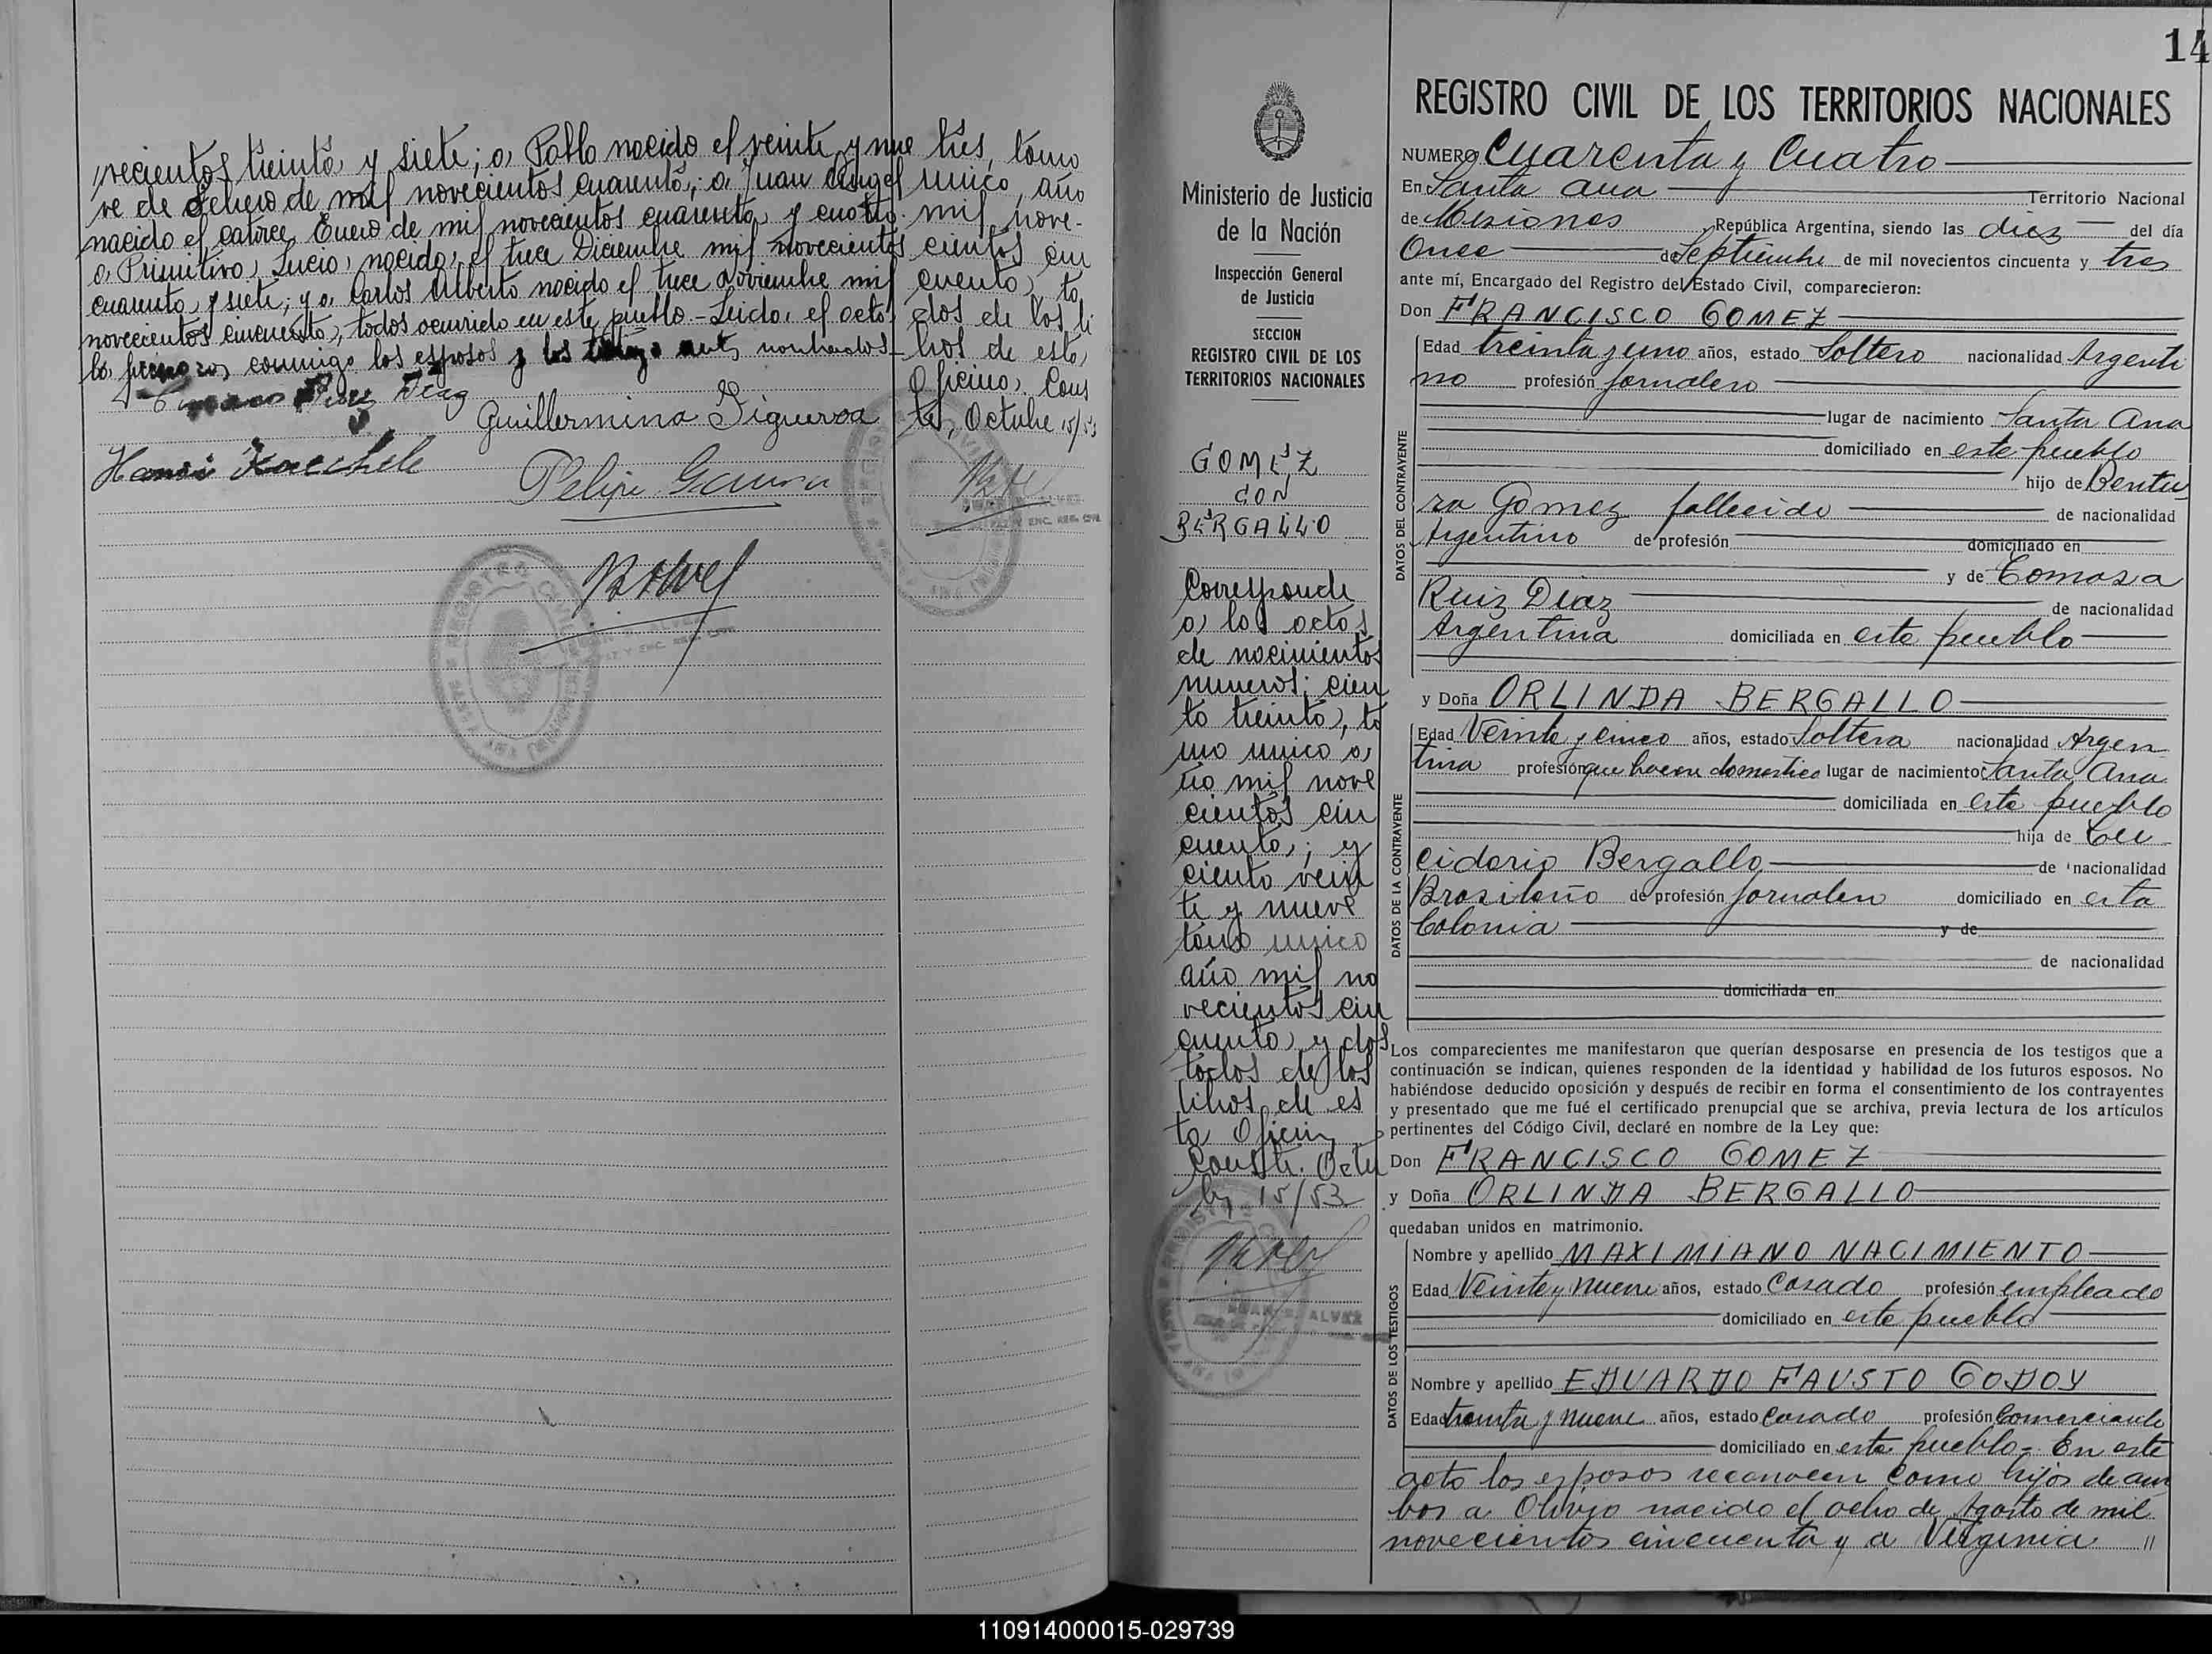 novecientos treinta y siete; a Pablo nacido el veinte y nue
ve de Febrero de mil novecientos cuarenta; a Juan Angel
nacido el catorce Enero de mil novecientos cuarenta y cuatro
a Primitivo Lucio, nacido, el trece Diciembre mil novecientos
cuarenta y siete; y a Carlos Alberto nacido el trece Noviembre mil
novecientos cincuenta, todos ocurrido en este pueblo - Leida, el acta
la firmaron conmigo los esposos y los testigos antes nombrados
Ruiz Diaz
Guillermina Figueroa
Felipe
tres, tomo
unico, año
mil nove-
cientos cin
cuenta, to
dos de los li
bros de esta
Oficina. Cons
te, Octubre 15/53
14
Ministerio de Justicia
de la Nación
Inspección General
de Justicia
SECCION
REGISTRO CIVIL DE LOS
TERRITORIOS NACIONALES
GOMEZ
CON
BERGALLO
Corresponde
a los actos
de nacimientos
numeros: cien
to treinta, to
mo unico a
ño mil nove
cientos cin
cuenta; y
ciento vein
te y nueve
tomo unico
año mil no
vecientos cin
cuenta y dos
todos de los
libros de es
ta Oficin
Conste. Octu
bre 15/53
REGISTRO CIVIL DE LOS TERRITORIOS NACIONALES
NUMERO Cuarenta y Cuatro
En Santa Ana Territorio Nacional
de Misiones, República Argentina, siendo las diez del día
Once de Septiembre de mil novecientos cincuenta y tres
ante mí, Encargado del Registro del Estado Civil, comparecieron:
Don FRANCISCO GOMEZ
DATOS DEL CONTRAYENTE
Edad treinta y uno años, estado Soltero nacionalidad Argenti
no profesión Jornalero
lugar de nacimiento Santa Ana
domiciliado en este pueblo
hijo de Ventu
ra Gomez fallecido de nacionalidad
Argentino de profesión domiciliado en
y de Tomasa
Ruiz Diaz de nacionalidad
Argentina domiciliada en este pueblo
y Doña ORLINDA BERGALLO
DATOS DE LA CONTRAYENTE
Edad Veinte y cinco años, estado Soltera nacionalidad Argen
tina profesión que hacere domestico lugar de nacimiento Santa Ana
domiciliada en este pueblo
hija de Leu
cidorio Bergallo de nacionalidad
Brasileño de profesión Jornalero domiciliado en esta
Colonia y de
de nacionalidad
domiciliada en
Los comparecientes me manifestaron que querían desposarse en presencia de los testigos que a
continuación se indican, quienes responden de la identidad y habilidad de los futuros esposos. No
habiéndose deducido oposición y después de recibir en forma el consentimiento de los contrayentes
y presentado que me fué el certificado prenupcial que se archiva, previa lectura de los artículos
pertinentes del Código Civil, declaré en nombre de la Ley que:
Don FRANCISCO GOMEZ
y Doña ORLINDA BERGALLO
quedaban unidos en matrimonio.
DATOS DE LOS TESTIGOS
Nombre y apellido MAXIMIANO NACIMIENTO
Edad Veinte y nueve años, estado Casado profesión empleado
domiciliado en este pueblo
Nombre y apellido EDUARDO FAUSTO GODOY
Edad treinta y nueve años, estado Casado profesión Comerciante
domiciliado en este pueblo= En este
acto los esposos reconocen como hijos de am
bos a Olivio nacido el ocho de Agosto de mil
novecientos cincuenta y a Virginia "
110914000015-029739